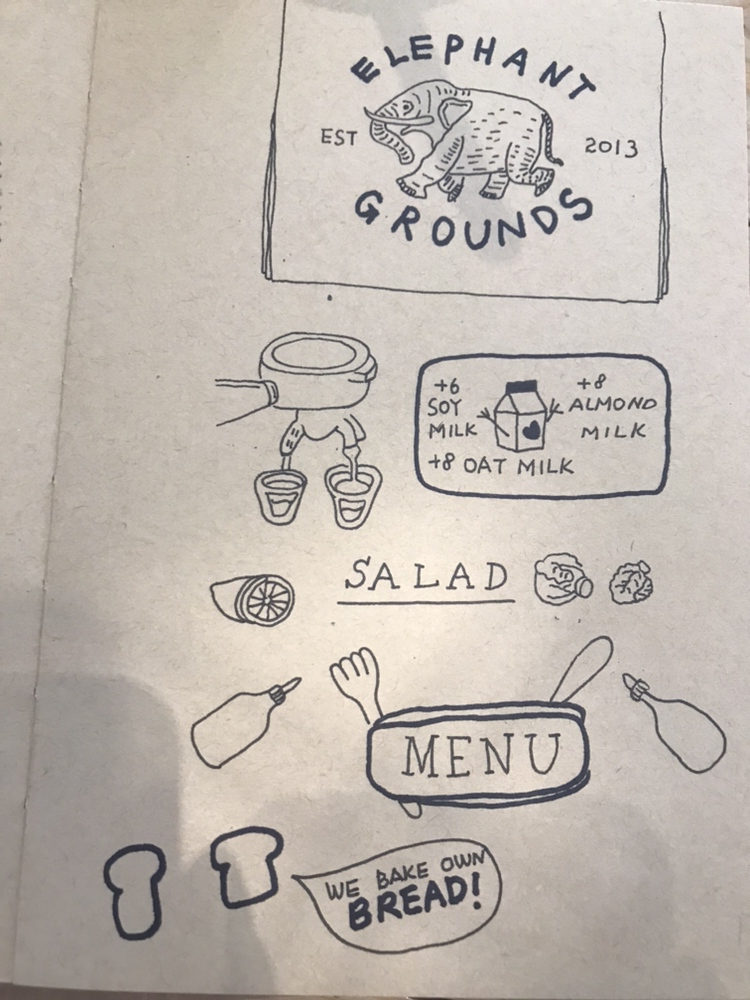 ELEPHANT
EST 2013
GROUNDS
+6
SOY
MILK
+8
ALMOND
MILK
+8 OAT MILK
SALAD
MENU
WE BAKE OWN
BREAD!